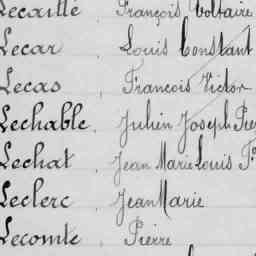 Lecaillé François Voltaire
Lecar Louis Constant
Lecas, François Victor
Lechable, Julien Joseph Pier
Lechat, Jean Marie Louis Fs
Leclerc, Jean Marie
Lecomte, Pierre